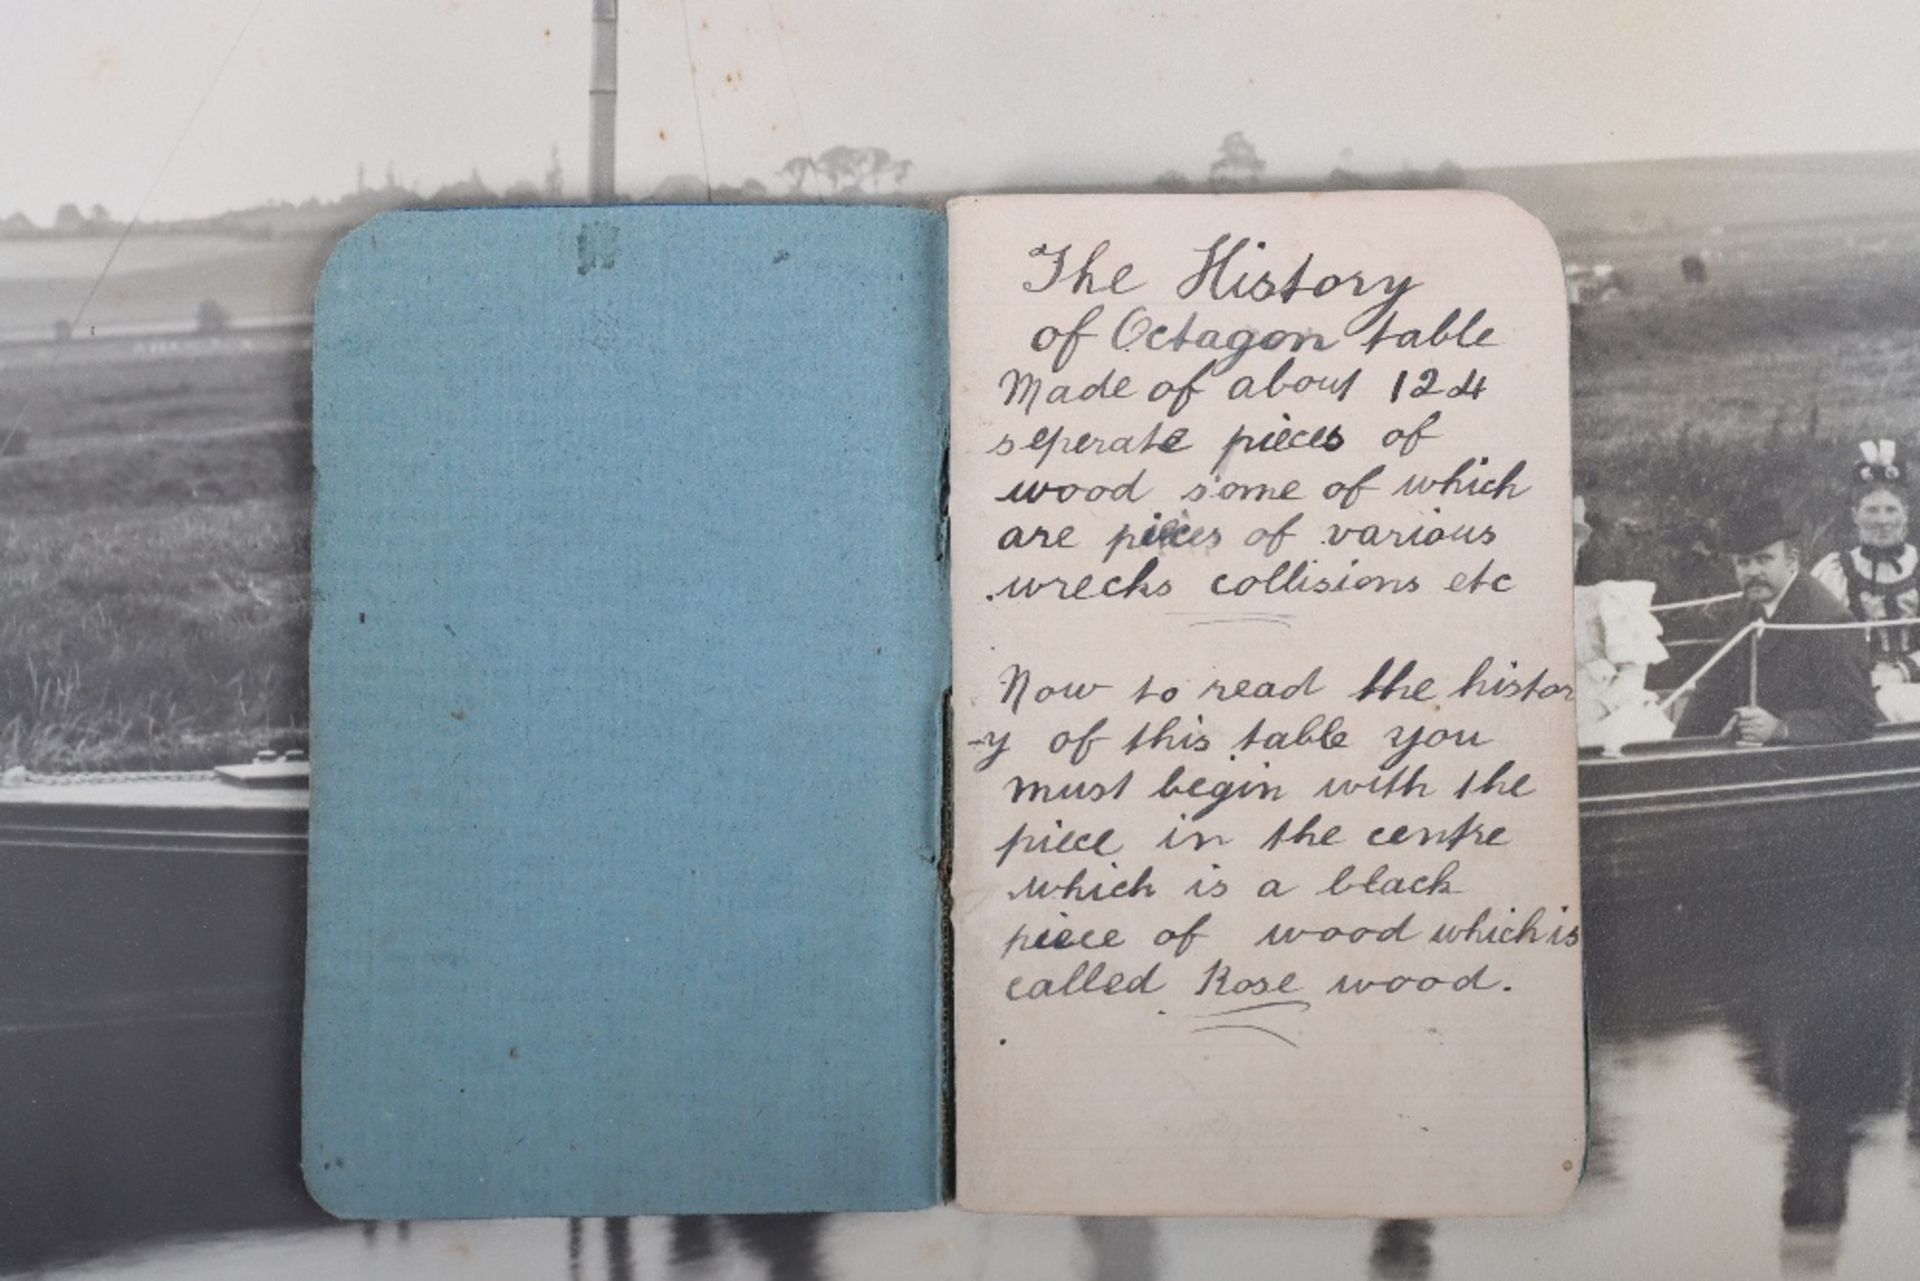 The History
of Octagon table
Made of about 124
seperate pieces of
wood some of which
are pieces of various
wrecks collisions etc
Now to read the histor
-y of this table you
must begin with the
piece in the centre
which is a black
piece of wood which is
called Rose wood.